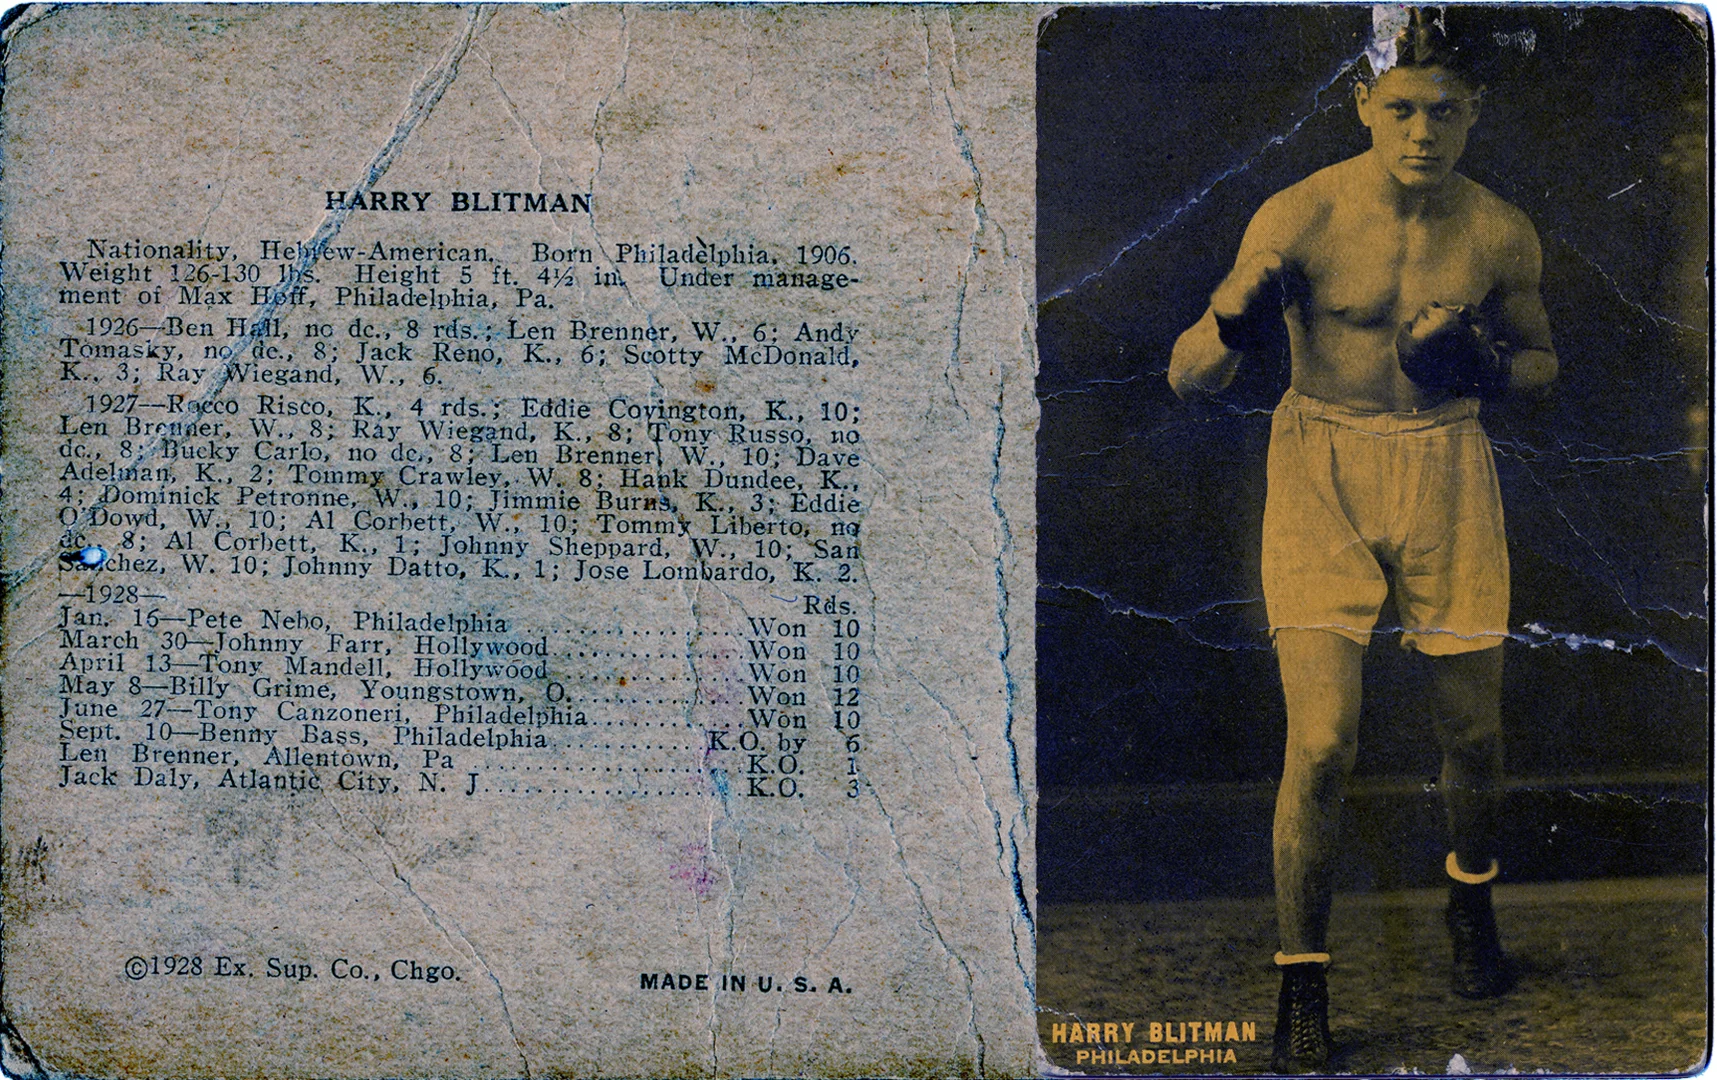 HARRY BLITMAN
Nationality, Hebrew-American. Born Philadelphia, 1906.
Weight 126-130 lbs. Height 5 ft. 4½ in. Under manage-
ment of Max Hoff, Philadelphia, Pa.
1926—Ben Hall, no dc., 8 rds.; Len Brenner, W., 6; Andy
Tomasky, no dc., 8; Jack Reno, K., 6; Scotty McDonald,
K., 3; Ray Wiegand, W., 6.
1927—Rocco Risco, K., 4 rds.; Eddie Covington, K., 10;
Len Brenner, W., 8; Ray Wiegand, K., 8; Tony Russo, no
dc., 8; Bucky Carlo, no dc., 8; Len Brenner, W., 10; Dave
Adelman, K., 2; Tommy Crawley, W. 8; Hank Dundee, K.,
4; Dominick Petronne, W., 10; Jimmie Burns, K., 3; Eddie
O'Dowd, W., 10; Al Corbett, W., 10; Tommy Liberto, no
dc., 8; Al Corbett, K., 1; Johnny Sheppard, W., 10; San
Sanchez, W. 10; Johnny Datto, K., 1; Jose Lombardo, K. 2.
—1928— Rds.
Jan. 16—Pete Nebo, Philadelphia ..................Won 10
March 30—Johnny Farr, Hollywood..................Won 10
April 13—Tony Mandell, Hollywood..................Won 10
May 8—Billy Grime, Youngstown, O..................Won 12
June 27—Tony Canzoneri, Philadelphia..............Won 10
Sept. 10—Benny Bass, Philadelphia..............K.O. by 6
Len Brenner, Allentown, Pa ......................K.O. 1
Jack Daly, Atlantic City, N. J......................K.O. 3
©1928 Ex. Sup. Co., Chgo.
MADE IN U. S. A.
HARRY BLITMAN
PHILADELPHIA